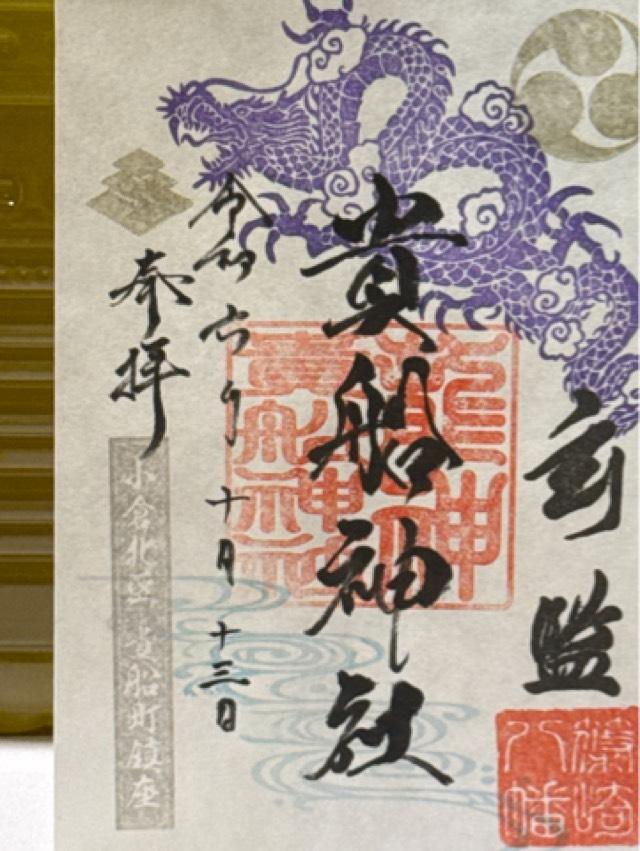 監
篠崎
八幡
貴船神社
龍神
令和六年十月十三日
奉拝
小倉北区 貴船町鎮座